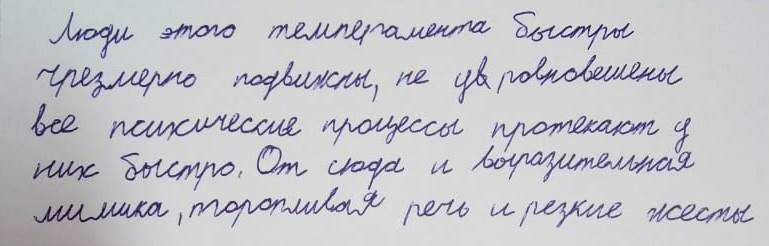 Люди этого темперамента быстры
чрезмерно подвижны, не ура вновешены
все психические процессы протекают у
них быстро. От сюда и выразительная
мимика, торопливая речь и резкие жесты